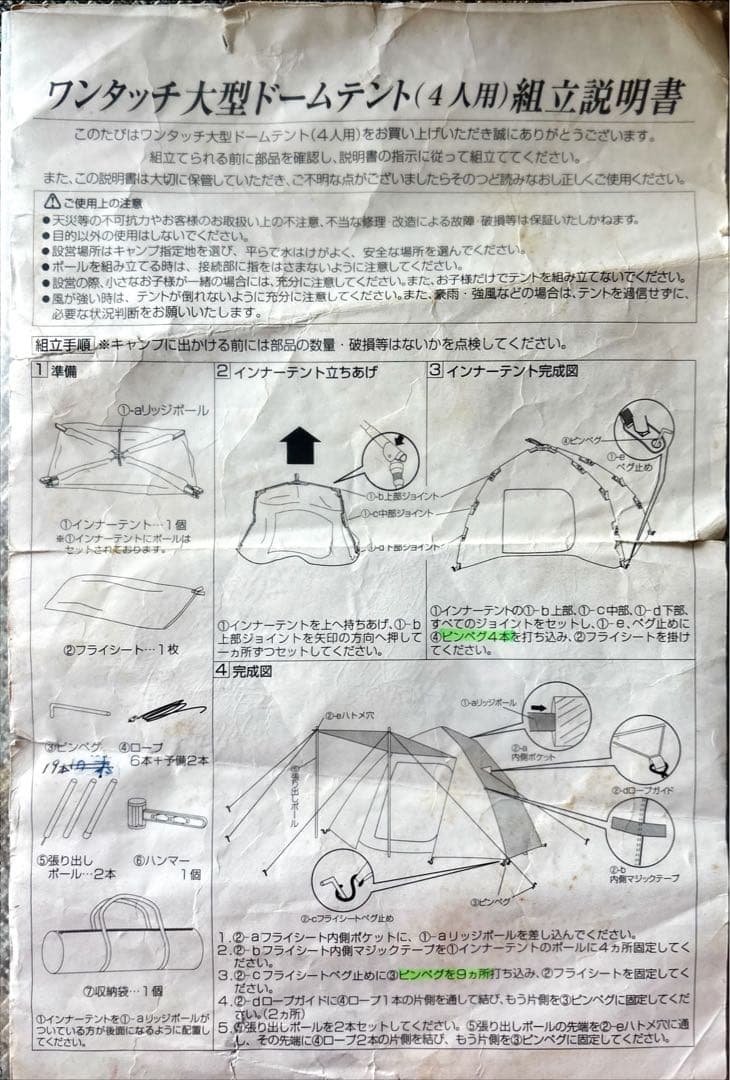 ワンタッチ大型ドームテント(4人用)組立説明書
このたびはワンタッチ大型ドームテント(4人用)をお買い上げいただき誠にありがとうございます。
組立てられる前に部品を確認し、説明書の指示に従って組立ててください。
また、この説明書は大切に保管していただき、ご不明な点がございましたらそのつど読みなおし正しくご使用ください。
⚠ご使用上の注意
●天災等の不可抗力やお客様のお取扱い上の不注意、不当な修理・改造による故障・破損等は保証いたしかねます。
●目的以外の使用はしないでください。
●設営場所はキャンプ指定地を選び、平らで水はけがよく、安全な場所を選んでください。
●ポールを組み立てる時は、接続部に指をはさまないように注意してください。
●設営の際、小さなお子様が一緒の場合には、充分に注意してください。また、お子様だけでテントを組み立てないでください。
●風が強い時は、テントが倒れないように充分に注意してください。また、豪雨・強風などの場合は、テントを過信せずに、
必要な状況判断をお願いいたします。
組立手順 ※キャンプに出かける前には部品の数量・破損等はないかを点検してください。
1 準備
①-aリッジポール
①インナーテント…1個
※①インナーテントにポールは
セットされております。
②フライシート…1枚
③ピンペグ ④ロープ
19本 6本+予備2本
⑤張り出し ⑥ハンマー
ポール…2本 1個
⑦収納袋…1個
①インナーテントを①-aリッジポールが
ついている方が後面になるように配置し
てください。
2 インナーテント立ちあげ
①-b上部ジョイント
①-c中部ジョイント
①-d下部ジョイント
①インナーテントを上へ持ちあげ、①-b
上部ジョイントを矢印の方向へ押して
一ヵ所ずつセットしてください。
3 インナーテント完成図
④ピンペグ
①-e
ペグ止め
①インナーテントの①-b上部、①-c中部、①-d下部、
すべてのジョイントをセットし、①-e、ペグ止めに
④ピンペグ4本を打ち込み、②フライシートを掛け
てください。
4 完成図
②-eハトメ穴
①-aリッジポール
②-a
内側ポケット
⑤張り出しポール
②-dロープガイド
②-b
内側マジックテープ
③ピンペグ
②-cフライシートペグ止め
1.②-aフライシート内側ポケットに、①-aリッジポールを差し込んでください。
2.②-bフライシート内側マジックテープを①インナーテントのポールに4ヵ所固定してく
ださい。
3.②-cフライシートペグ止めに③ピンペグを9ヵ所打ち込み、②フライシートを固定してく
ださい。
4.②-dロープガイドに④ロープ1本の片側を通して結び、もう片側を③ピンペグに固定してくだ
さい。(2ヵ所)
5.⑤張り出しポールを2本セットしてください。⑤張り出しポールの先端を②-eハトメ穴に通
し、その先端に④ロープ2本の片側を結び、もう片側を③ピンペグに固定してください。